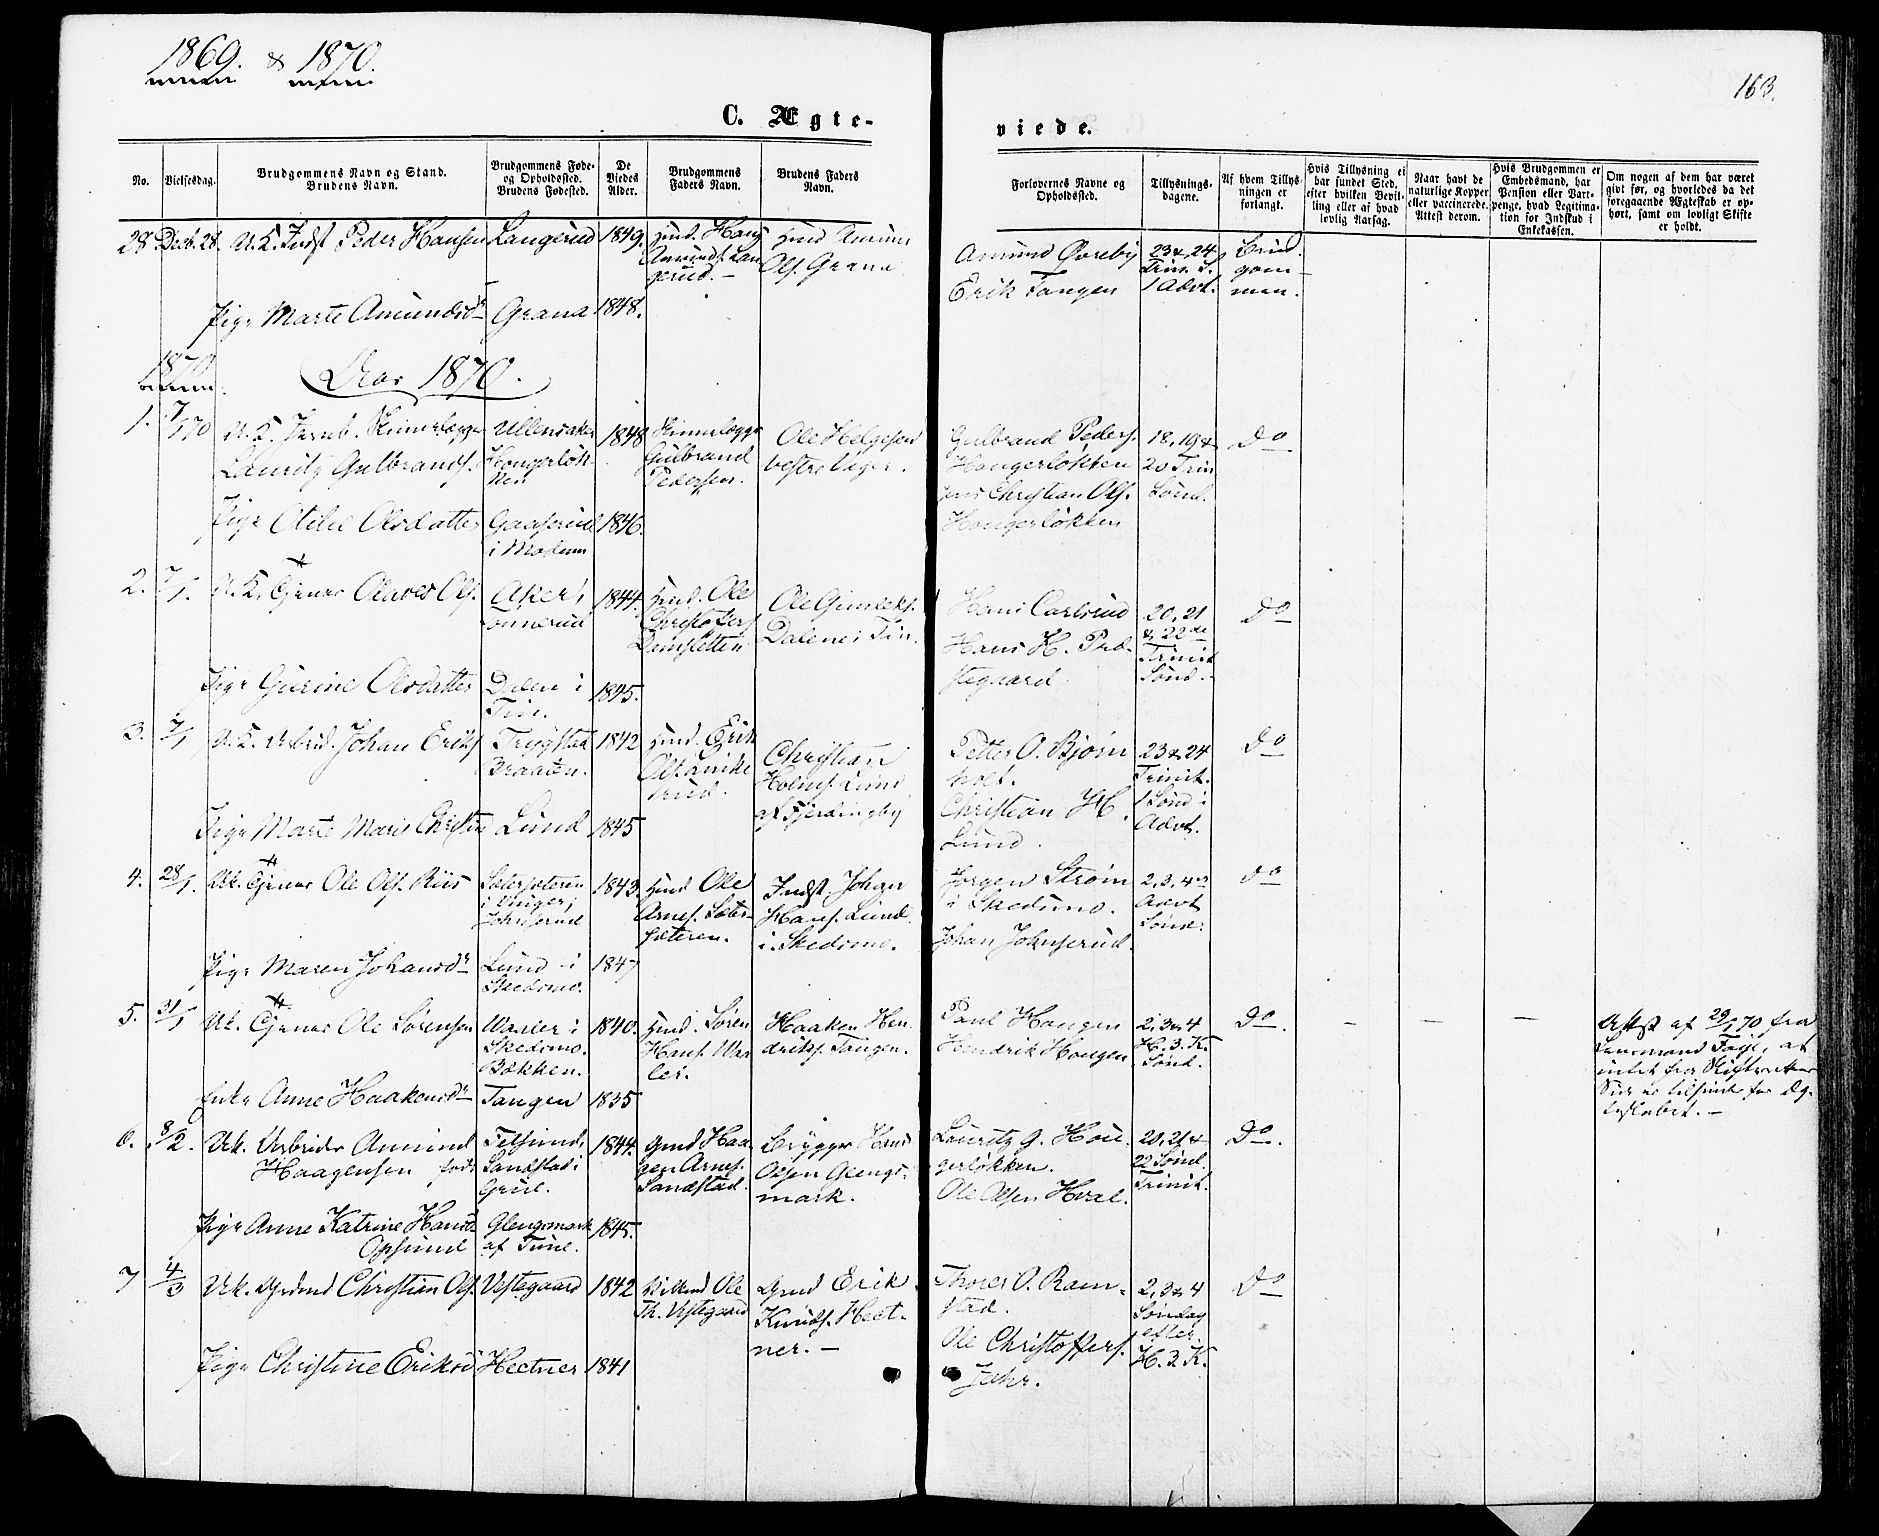 1869. & 1870.
163.
C. Ægte-
viede.
No.
Vielsesdag.
Brudgommens Navn og Stand.
Brudens Navn.
Brudgommens Føde-
og Opholdssted.
Brudens Fødested.
De
Viedes
Alder.
Brudgommens
Faders Navn.
Brudens Faders
Navn.
Forlovernes Navne og
Opholdssted.
Tillysnings-
dagene.
Af hvem Tillys-
ningen er
forlangt.
Hvis Tillysning ei
har fundet Sted,
efter hvilken Bevil-
ling eller af hvad
lovlig Aarsag.
Naar havt de
naturlige Kopper
eller vaccinerede.
Attest derom.
Hvis Brudgommen er
Embedsmand, har
Pension eller Vart-
penge, hvad Legitima-
tion for Indskud i
Enkekassen.
Om nogen af dem har været
givt før, og hvorledes da det
foregaaende Ægteskab er op-
hørt, samt om lovligt Skifte
er holdt.
28 Decb. 28. U. K. Indst Peder Hansen
Langerud
1849.
Hans
Amunds. Lan-
gerud. —
Ols. Grana
Amund Øvreby
Erik Tangen
23 & 24
Trin. S.
1 Advt.
Brud-
gom-
men.
Pige Marte Amundsd.
Grana
1848.
1870
Aar 1870.
1.
7/1 70
U. K. Skinnelægger
Lauritz Gulbrands.
Ullensaker
Hougerløk-
ken
1848
Skinnelægger
Gulbrand
Pedersen.
Ole Helgesen
vestre Uger.
Gulbrand Peders.
Hougerløkken
Christian Ols.
Hougerløkken
18, 19 &
20 Trin
Sønd.
Do
Pige Otilie Olsdatter
Gaaserud
i Modum
1846.
2.
7/1.
U. K. Tjener Olaves Ols.
Aker,
1844.
Ole
Christofers.
Ole
Dalen i Tin.
Hans Carlsrud
Hans H. Præ-
stegaard
20, 21
& 22de
Trinit
Sønd.
Do
Pige Gurine Olsdatter
Dalen i
Tin.
1845.
3.
7/1
U. K. Arbeid. Johan Eriks.
Trygstad
Braaten.
1842
Erik
Christian
Lund
af Fjerdingby
Petter O. Bjørn
holt.
Christian H.
Lund.
23 & 24
Trinit.
1 Sønd i
Advt.
Do
Pige Marte Marie Christin
Lund
1845
4.
28/1.
Uk. Tjener Ole Ols. Riis
Sætersæteren
i Vinger;
Johnsrud
1843.
Ole
Arnes. Sæter-
sæteren.
Indst Johan
Hans. Lund
i Skedsmo.
Jørgen Strøm
i Skedsmo.
Johan Johnsrud.
2, 3, 4
Advt
Sønd.
Do
Pige Maren Johansdr
Lund i
Skedsmo.
1847
5.
31/1
Uk. Tjener Ole Sørensen
Waaler i
Skedsmo.
Bækken.
1840.
Søren
Hans. Waa-
ler.
Haaken Hen-
driks. Tangen.
Paul Haugen
Hendrik Haugen
2, 3 & 4
H. 3. K.
Sønd.
Do.
—
—
—
Attst af 29/1 70 fra
Lensmand at
intet fra Skifterettens
Side er til hinder for Æg-
teskabet. —
Enke Anne Haakensdr
Tangen
1835
6.
8/2.
Uk. Arbeider Amund
Haagensen
Sandstad i
Grue.
1844.
Gmd Haa-
gen Arnes.
Sandstad.
Brygger Hans
Olsen Glengs-
mark.
Lauritz G. Hou-
gerløkken.
Ole Olsen Hval.
20, 21 &
22 Sønd.
Trinit.
Do.
Pige Anne Katrine Hansd.
Opsund
Glengsmark
af Tune.
1845.
7
4/3
Uk. Christian Ols.
Vestegaard
1842
Ole
Th. Vestegaard
Gmd Erik
Knuds. Hect-
ner. —
Thores O. Ram-
stad.
Ole Christoffers.
Jahr.
2, 3 & 4
Søndag
efter
H. 3 K.
Do
Pige Christine Eriksd
Hectner
1841